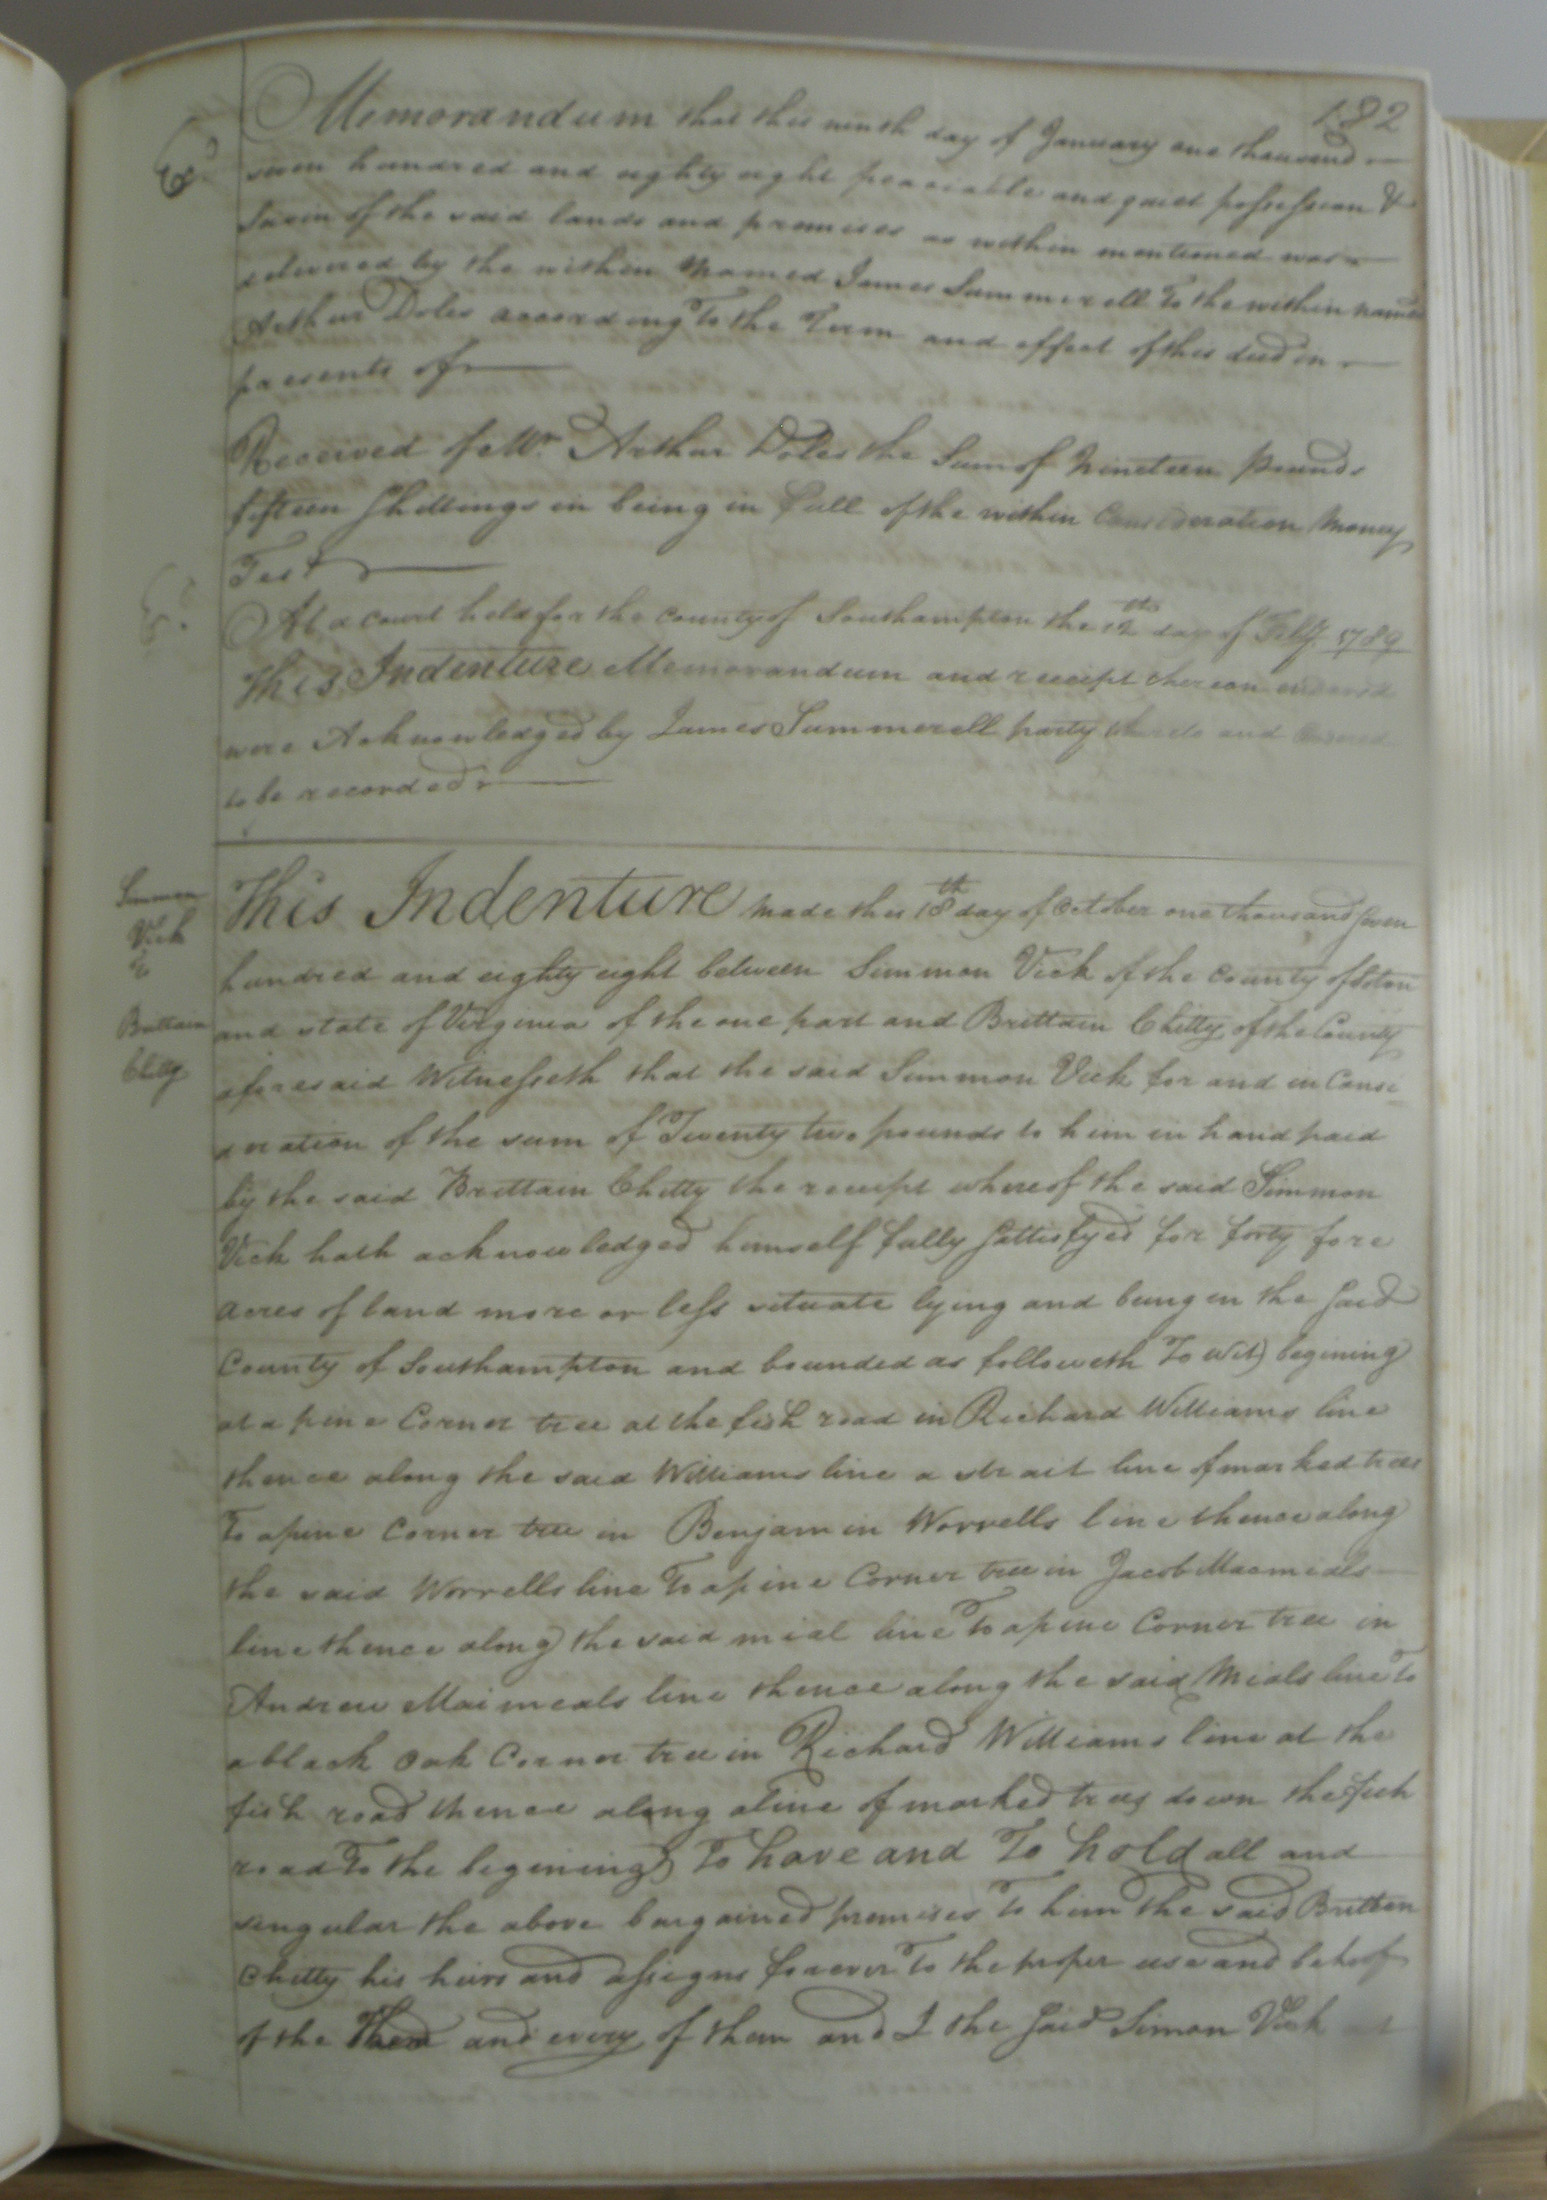 182
Memorandum that this ninth day of January one thousand
seven hundred and eighty eight peaceable and quiet possession &
Saxin of the said lands and premises as within mentioned was
delivered by the within Named James Summerell To the within named
Arthur Doles according To the Term and effect of this deed in
presents of
Received of Mr. Arthur Doles the Sum of Nineteen pounds
fifteen Shillings in being in full of the within Consideration Money
Test
At a court held for the county of Southampton the 12th day of Feby. 1789
This Indenture Memorandum and receipt thereon
were Acknowledged by James Summerell party thereto and
to be recorded
Simmon
Vick
to
Brittain
Chitty
This Indenture Made this 18th day of October one thousand seven
hundred and eighty eight between Simmon Vick of the County of Soton
and state of Virginia of the one part and Brittain Chitty of the County
aforesaid Witnesseth that the said Simmon Vick for and in Consi
deration of the sum of Twenty two pounds to him in hand paid
by the said Brittain Chitty the receipt whereof the said Simmon
Vick hath acknowledged himself fully Sattisfyed for forty fore
acres of land more or less situate lying and being in the said
County of Southampton and bounded as followeth To Wit) begining
at a pine Corner tree at the fish road in Richard Williams line
thence along the said Williams line a strait line of marked trees
To a pine Corner tree in Benjamin Worrells line thence along
the said Worrells line To a pine Corner tree in Jacob Macmials
line thence along the said mial line To a pine Corner tree in
Andrew Maimeals line thence along the said Mials line To
a black Oak Corner tree in Richard Williams line at the
fish road thence along a line of marked trees down the fish
road To the begining) To have and To hold all and
singular the above bargained premises To him the said Britten
Chitty his heirs and assigns forever To the proper use and behoof
of the and every of them and I the said Simon Vick